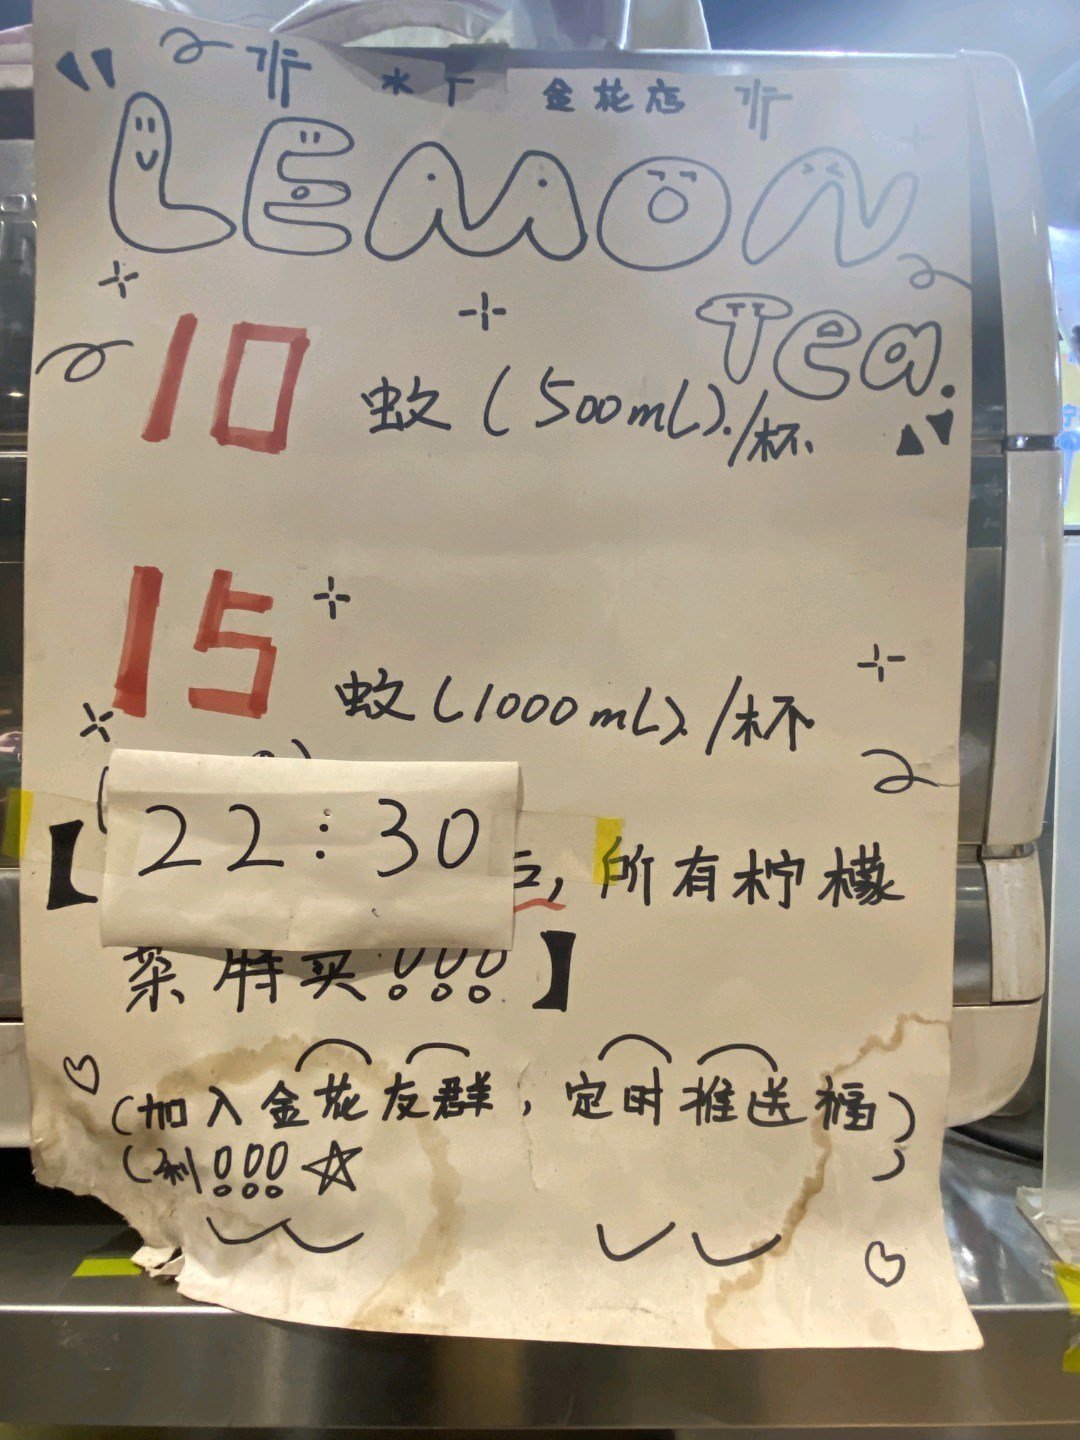 水厂 金花店
LEMON
Tea.
10 蚊(500mL)./杯
15 蚊(1000mL)./杯
【22:30后,所有柠檬
茶特买!!!】
(加入金花友群,定时推送福)
(利!!!☆ )